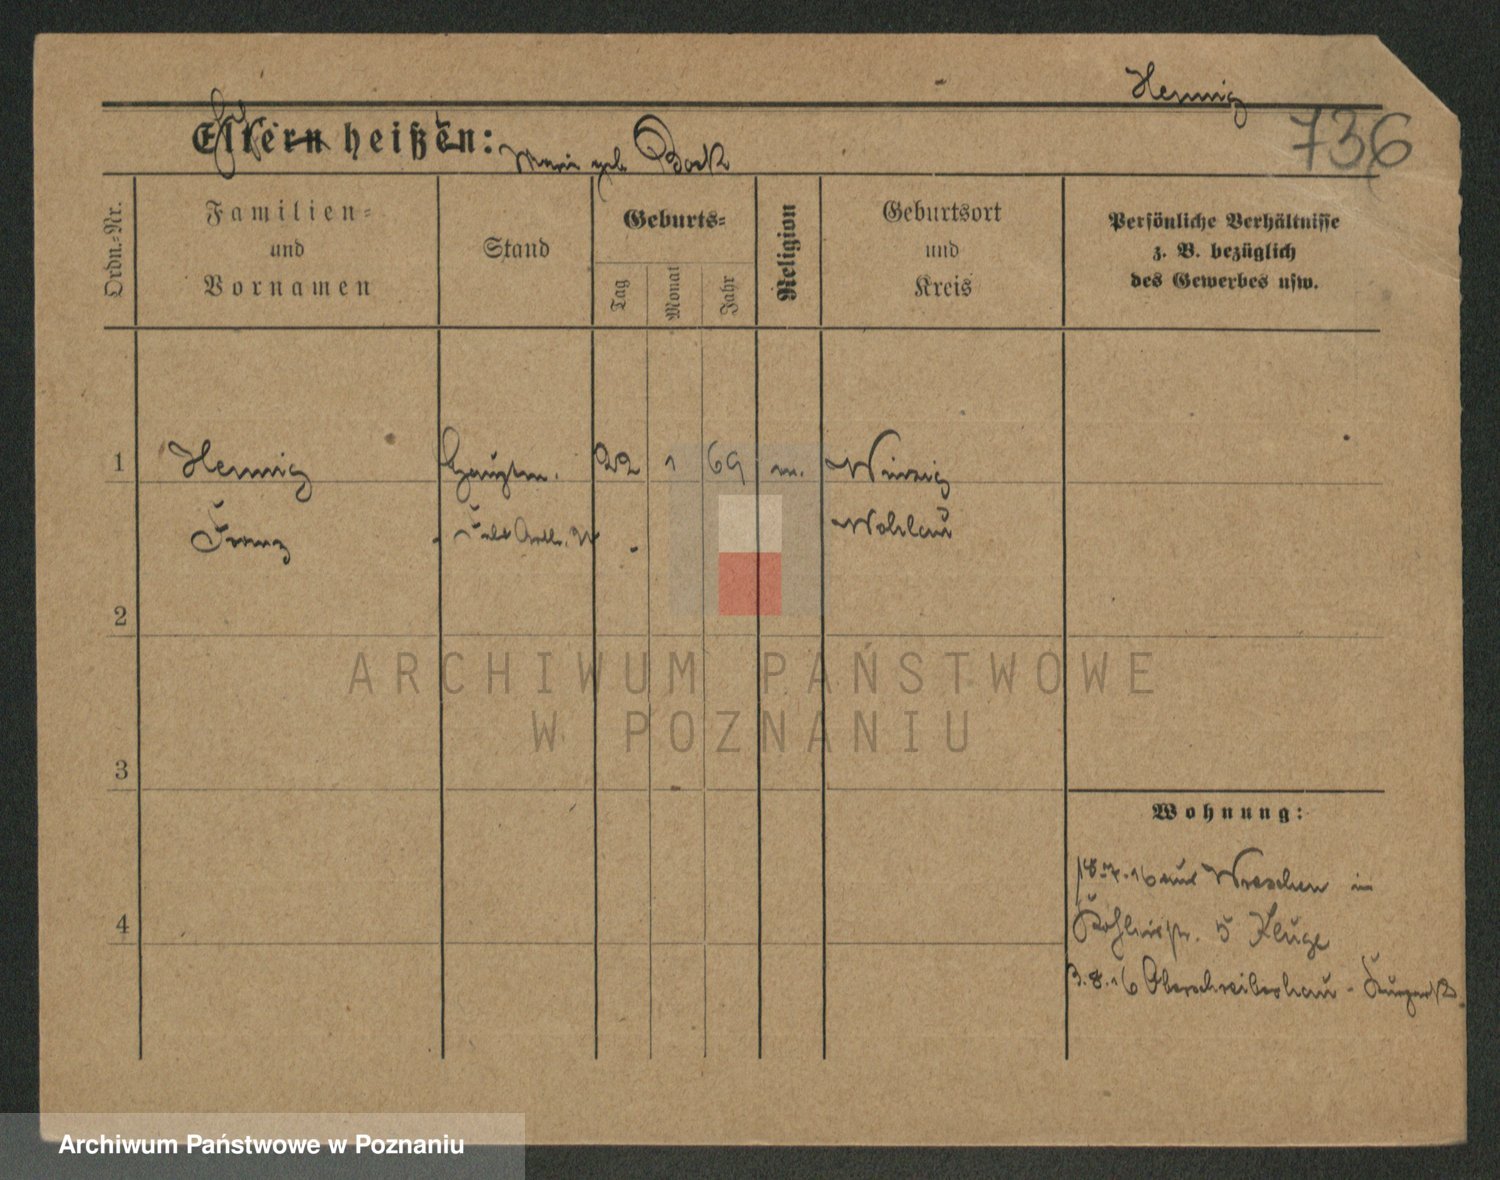 Hennig
736
Eltern heißen:
Marie geb. Bock
Ordn.-Nr.
Familien-
und
Vornamen
Stand
Geburts-
Tag
Monat
Jahr
Religion
Geburtsort
und
Kreis
Persönliche Verhältnisse
z. B. bezüglich
des Gewerbes usw.
1
Hennig
Hauptm.
22
1
69
Winzig
Franz
Wohlau
2
3
4
ARCHIWUM PAŃSTWOWE
W POZNANIU
Wohnung:
18.7.16 aus Wreschen in
5 Kluge
3.8.16 Oberschreiberhau -
Archiwum Państwowe w Poznaniu